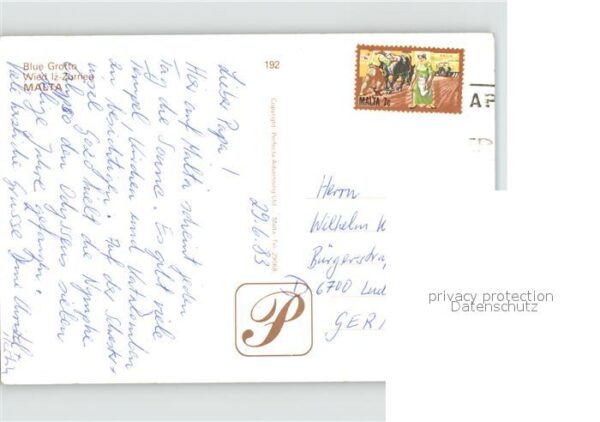 Blue Grotto
Wied Iż-Żurrieq
MALTA
192
MALTA 7c
AF
Copyright Perfecta Advertising Ltd. Malta. Tel. 29068
29.6.83
Liebe Papa!
Hier auf Malta scheint jeden
Tag die Sonne. Es gibt viele
Tempel, Kirchen und Katakomben
zu besichtigen. Auf der Schwester-
insel Gozo hielt die Nymphe
Calypso den Odysseus sieben
lange Jahre gefangen.
Viele herzliche Grüsse
Herrn
Wilhelm K
Bürgerstra
D 6700 Lud
GER
P
privacy protection
Datenschutz